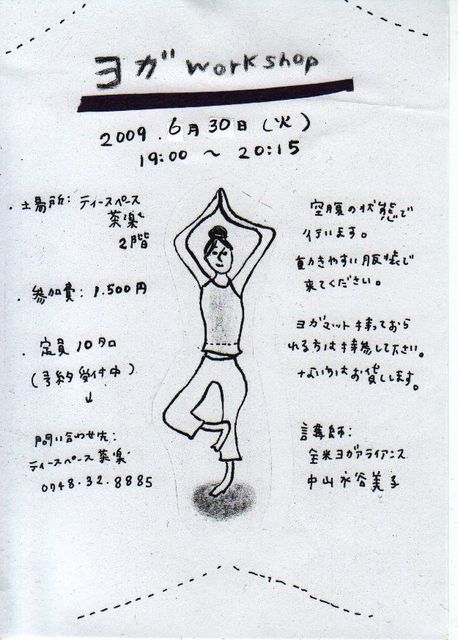 ヨガ workshop
2009.6月30日(火)
19:00 〜 20:15
・場所: ティースペース
茶楽
2階
・参加費: 1.500円
・定員 10名
(予約受付中)
↓
問い合わせ先:
ティースペース 茶楽
0748.32.8885
空腹の状態で
行います。
動きやすい服装で
来てください。
ヨガマット持っておら
れる方は持参して下さい。
ない方はお貸しします。
講師:
全米ヨガアライアンス
中山